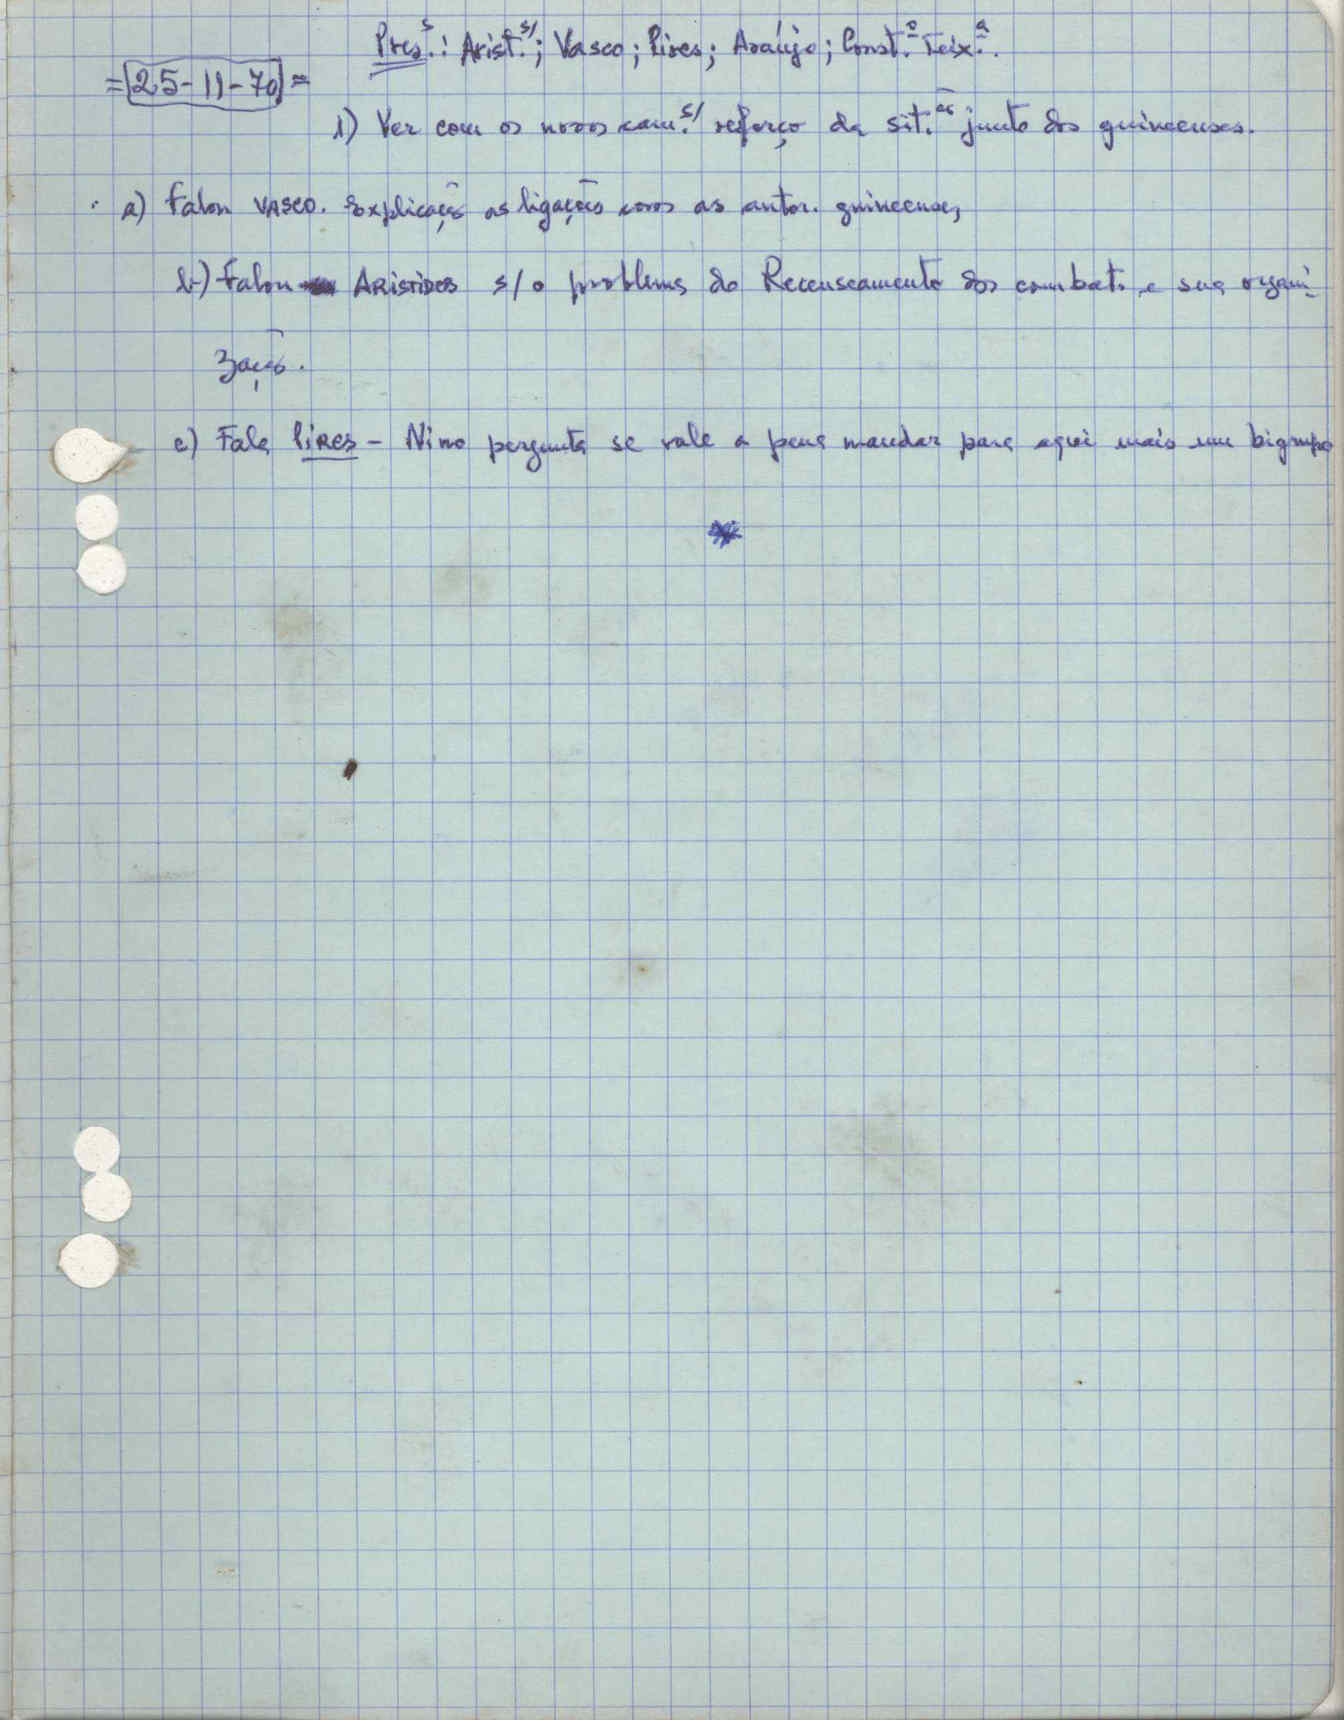 Pres.s: Arist.s/; Vasco; Pires; Araújo; Const.º Teix.ª.
=25-11-70=
1) Ver com os novos cam.s/ reforço da sit.ão junto dos guineenses.
a) Falou VASCO. Explicação as ligações com as autor. guineenses,
b) Falou ARISTIDES s/o problema do Recenseamento dos combat. e sua organi-
zação.
c) Fala Pires - Nino pergunta se vale a pena mandar para aqui mais um bigrupo